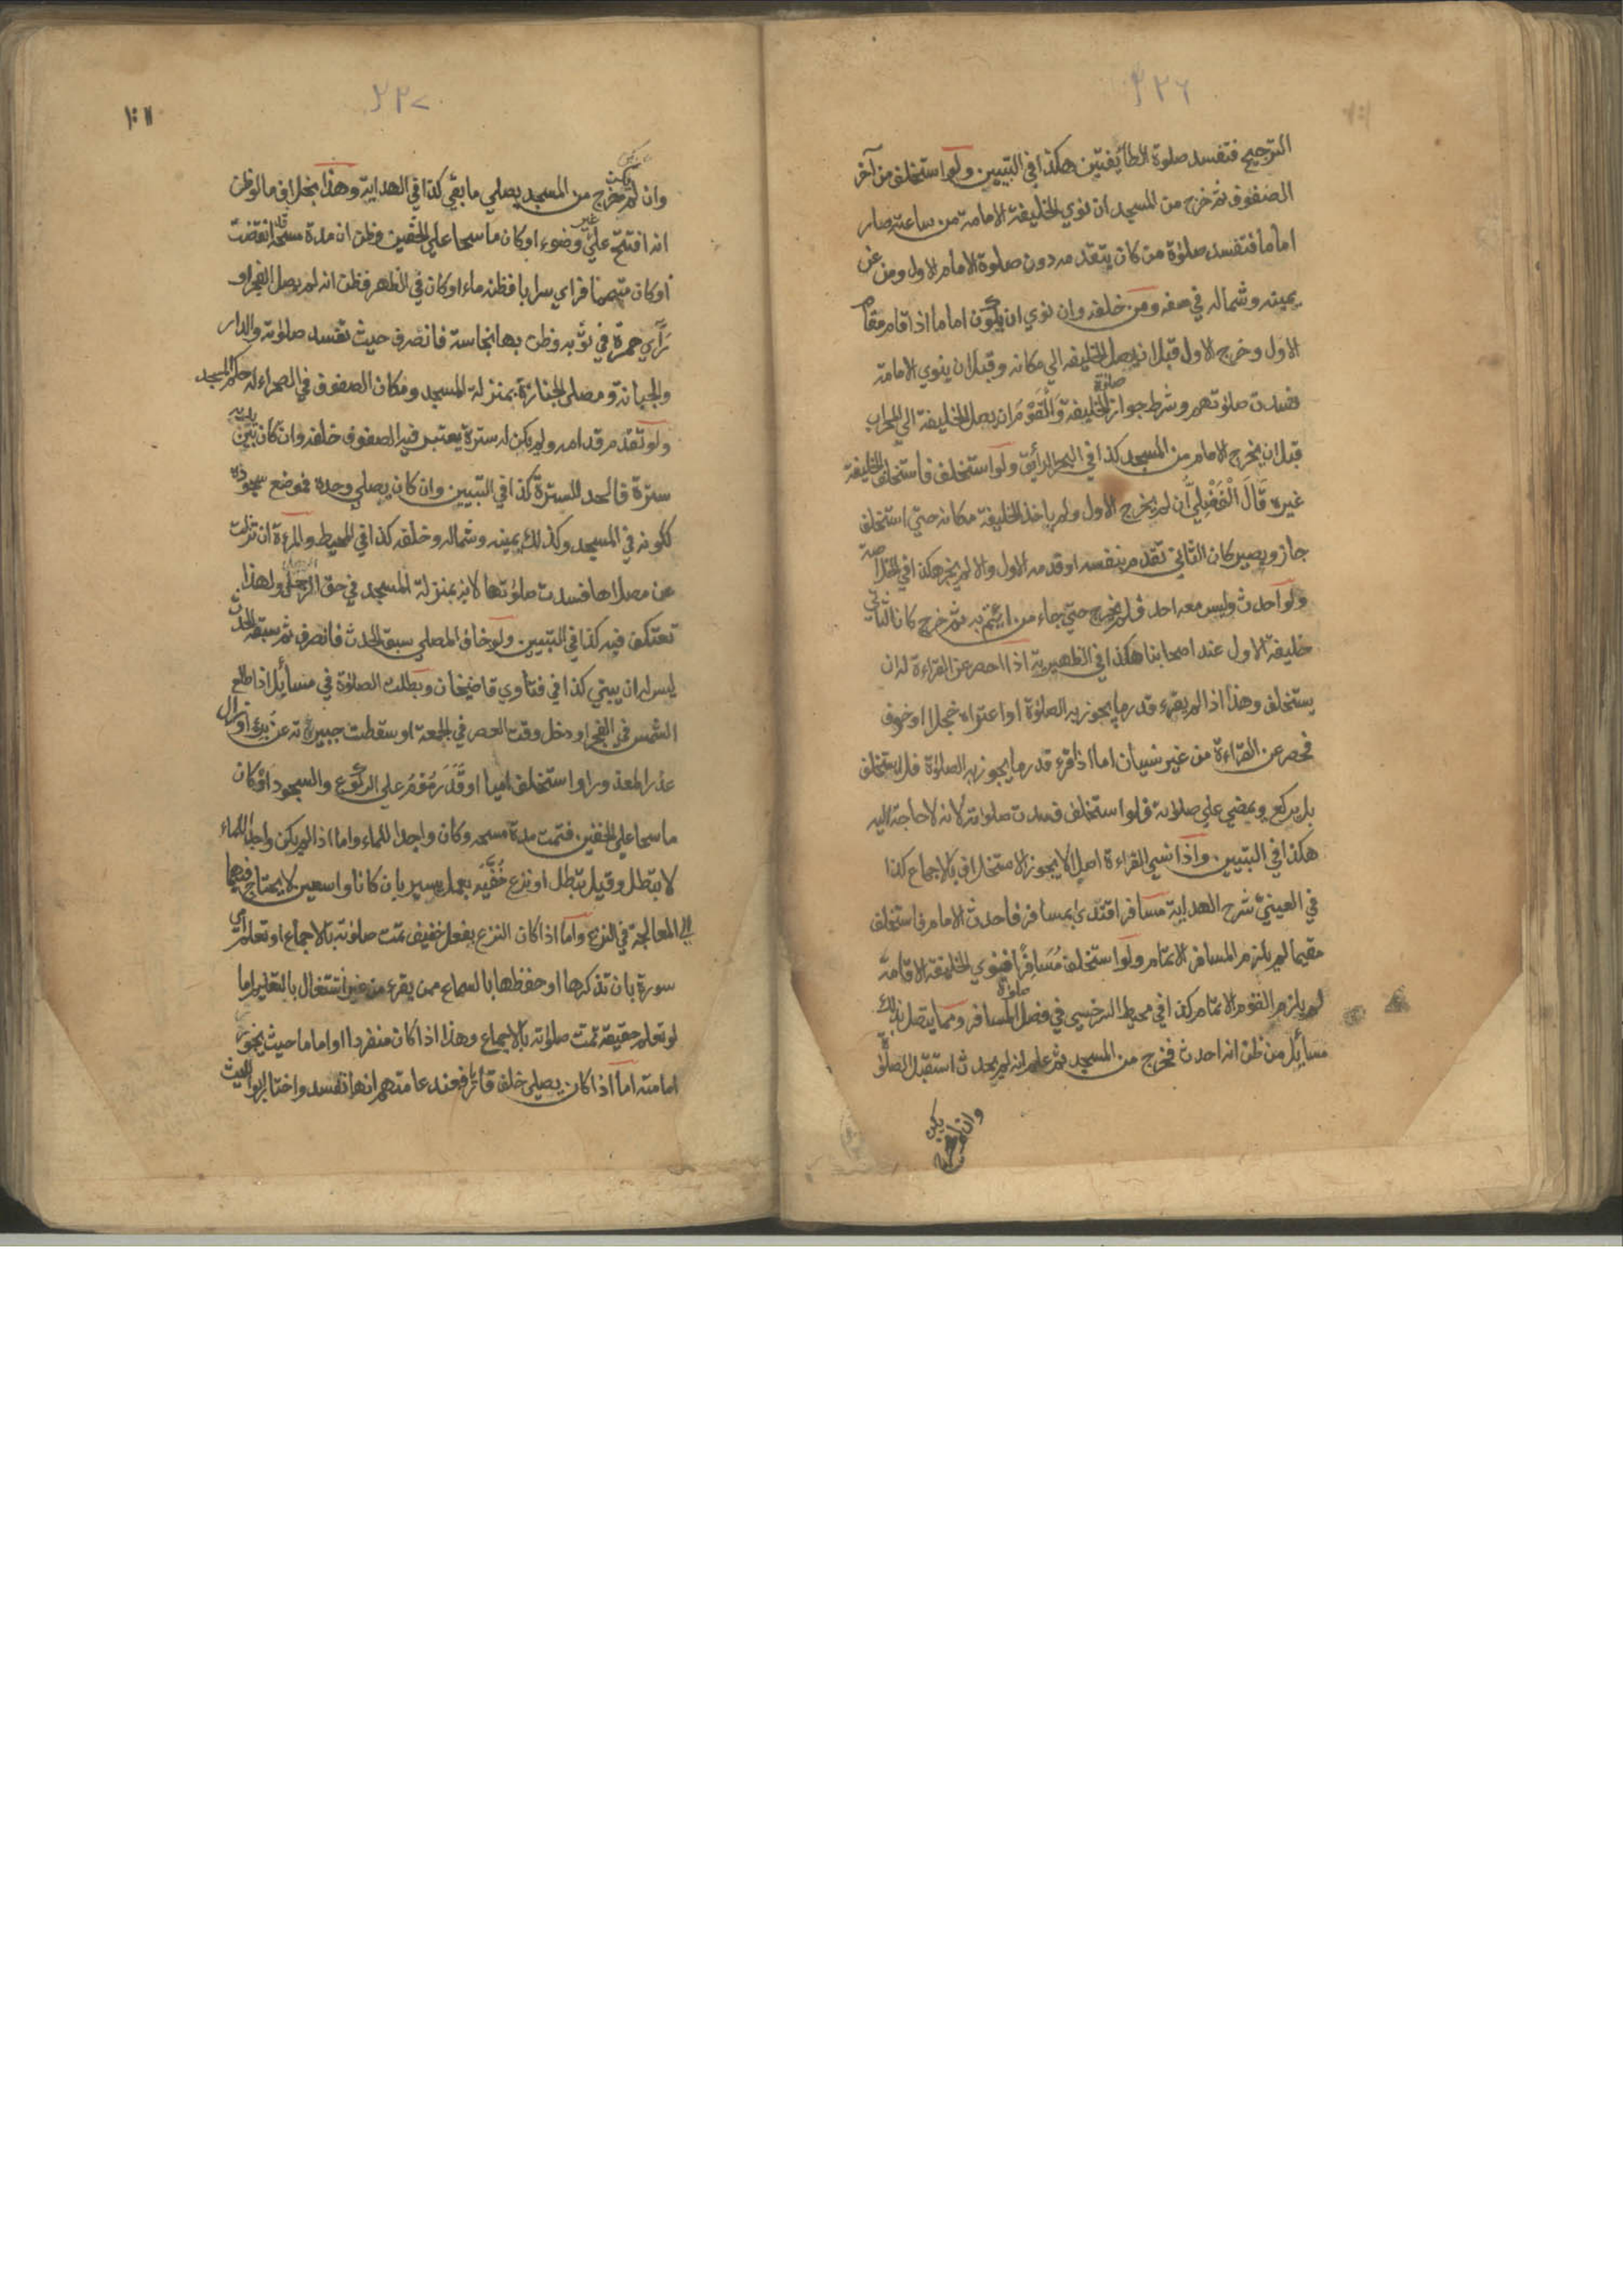 ٢٢٦
الترجيح فتفسد صلوة الطائفتين هكذا في التبيين ولو استخلف من آخر
الصفوف ثم خرج من المسجد ان نوي الخليفة الامامة من ساعته صار
اماما فتفسد صلوة من كان يتقدمه دون صلوة الامام الاول ومن عن
يمينه وشماله في صفه ومن خلفه وان نوي ان يكون اماما اذا قام مقام
الاول وخرج الاول قبل ان يصل الخليفه الي مكانه وقبل ان ينوي الامامة
فسدت صلوتهم وشرط جواز صلوة الخليفة والقوم ان يصل الخليفة الي المحراب
قبل ان يخرج الامام من المسجد كذا في البحر الرائق ولو استخلف فاستخلف الخليفة
غيره قال الفضلي ان لم يخرج الاول ولم ياخذ الخليفة مكانه حتي استخلف
جاز ويصير كان الثاني تقدم بنفسه او قدمه الاول والا لم يجز هكذا في الخلاصة
ولو احدث وليس معه احد فلم يخرج حتي جاء من ائتم به ثم خرج كان الثاني
خليفة الاول عند اصحابنا هكذا في الظهيرية اذا احصر عن القراءة له ان
يستخلف وهذا اذا لم يقرء قدر ما يجوز به الصلوة او اعتراه خجلا او خوف
فحصر عن القراءة من غير نسيان اما اذا قرء قدر ما يجوز به الصلوة فلا يستخلف
بل يركع ويمضي علي صلوته فلو استخلف فسدت صلوته لانه لا حاجة اليه
هكذا في التبيين واذا نسي القراءة اصلا لا يجوز الاستخلاف بالاجماع كذا
في العيني شرح الهداية مسافر اقتدي بمسافر فاحدث الامام فاستخلف
مقيما لم يلزم المسافر الاتمام ولو استخلف مسافرا فنوي الخليفة الاقامة
لم يلزم القوم الاتمام كذا في محيط السرخسي في فصل صلوة المسافر ومما يتصل بذلك
مسائل من ظن انه احدث فخرج من المسجد ثم علم انه لم يحدث استقبل الصلوة
وان لم يكن
٢٢٧
وان لم يكن خرج من المسجد يصلي ما بقي كذا في الهداية وهذا بخلاف ما لو ظن
انه افتتح علي غير وضوء او كان ماسحا علي الخفين وظن ان مدة مسحه قد انقضت
او كان متيمما فراي سرابا فظنه ماء او كان في الظهر فظن انه لم يصل الفجر او
رأي حمرة في ثوبه وظن بها نجاسة فانصرف حيث تفسد صلوته والدار
والجبانة ومصلى الجنازة بمنزلة المسجد ومكان الصفوف في الصحراء له حكم المسجد
ولو تقدم قدامه ولم يكن له سترة يعتبر فيه الصفوف خلفه وان كان بين يديه
سترة فالحد للسترة كذا في التبيين وان كان يصلي وحده فموضع سجوده
ككونه في المسجد وكذلك يمينه وشماله وخلفه كذا في المحيط والمرءة ان نزلت
عن مصلاها فسدت صلوتها لانه بمنزلة المسجد في حق الرجل ولهذا
تعتكف فيه كذا في التبيين ولو خاف المصلي سبق الحدث فانصرف ثم سبقه الحدث
ليس له ان يبني كذا في فتاوي قاضيخان وبطلت الصلوة في مسائل اذا طلع
الشمس في الفجر او دخل وقت العصر في الجمعة او سقطت جبيرته عن برء او زال
عذر المعذور او استخلف اميا او قدر موم علي الركوع والسجود او كان
ماسحا علي الخفين فتمت مدة مسحه وكان واجدا للماء واما اذا لم يكن واجدا للماء
لا تبطل وقيل تبطل او نزع خفيه بعمل يسير بان كانا واسعين لا يحتاج فيهما
الي المعالجة في النزع واما اذا كان النزع بفعل خفيف تمت صلوته بالاجماع او تعلم امي
سورة بان تذكرها او حفظها بالسماع ممن يقرء من غير اشتغال بالتعليم اما
لو تعلم حقيقة تمت صلوته بالاجماع وهذا اذا كان منفردا او اماما حيث يجوز
امامته اما اذا كان يصلي خلف قارئ فعند عامتهم انها تفسد واختار ابو الليث